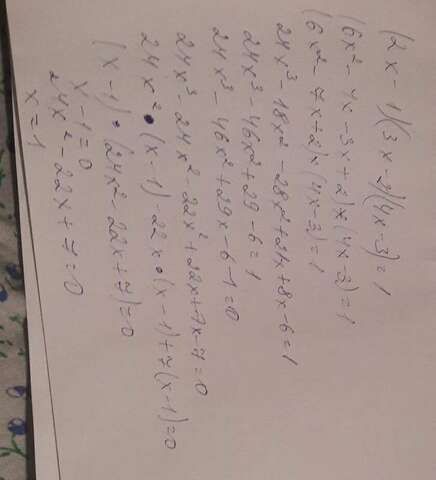 (2x-1)(3x-2)(4x-3)=1
(6x²-4x-3x+2)×(4x-3)=1
(6x²-7x+2)×(4x-3)=1
24x³-18x²-28x²+21x+8x-6=1
24x³-46x²+29-6=1
24x³-46x²+29x-6-1=0
24x³-24x²-22x²+22x+7x-7=0
24x²•(x-1)-22x•(x-1)+7(x-1)=0
(x-1)•(24x²-22x+7)=0
x-1=0
24x²-22x+7=0
x=1